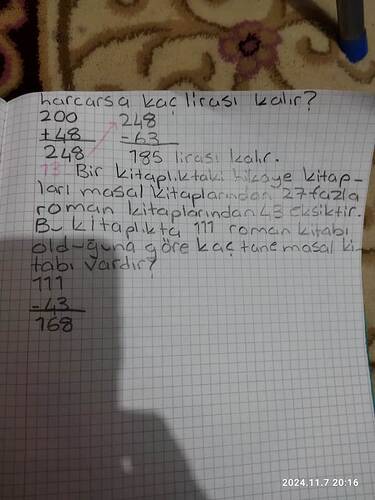 harcarsa kaç lirası kalır?
200 248
+48 -63
248 185 lirası kalır.
13 Bir kitaplıktaki hikaye kitap-
ları masal kitaplarından 27 fazla
roman kitaplarından 43 eksiktir.
Bu kitaplıkta 111 roman kitabı
olduğuna göre kaç tane masal ki-
tabı vardır?
111
-43
168
2024.11.7 20:16